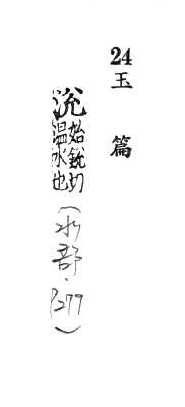 24玉篇
涗始銳切溫水也（水部·P277）